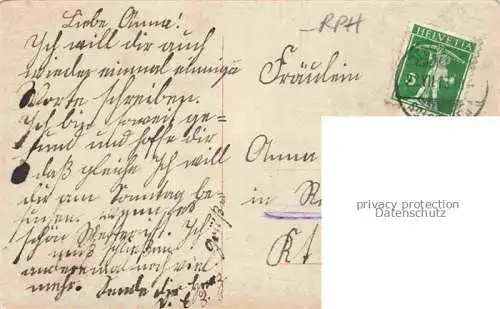 Liebe Anna!
Ich will dir auch
wieder einmal einige
Worte schreiben.
Ich bin soweit ge-
sund und hoffe dir
daß gleiche Ich will
dir am Sonntag be-
suchen. Wenn es
schön Wetter ist. Ich
muß schließen
anderemal noch viel
mehr. Sende dir
RPH
Fräulein
Anna
in Re
Kt
HELVETIA
5
privacy protection
Datenschutz